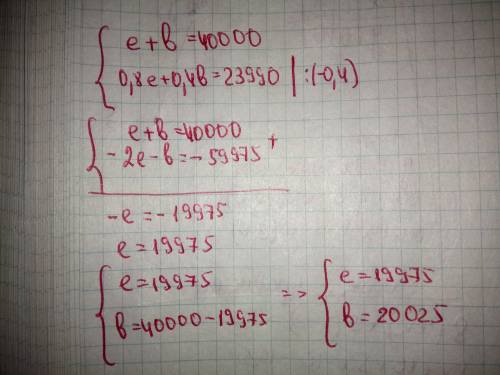 e+b=40000
0,8e+0,4b=23990 | :(-0,4)
e+b=40000
-2e-b=-59975 +
-e=-19975
e=19975
e=19975
b=40000-19975 => e=19975
b=20025